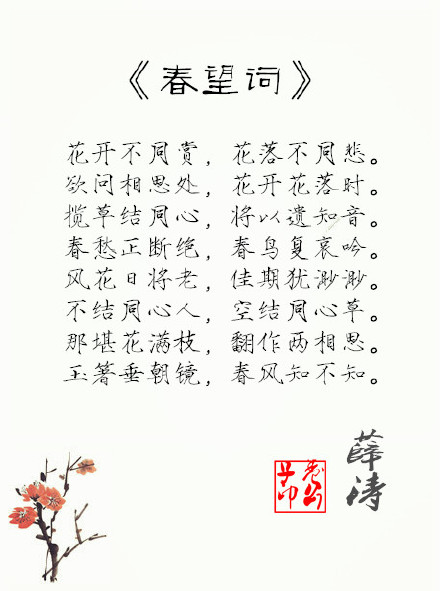 《春望词》
花开不同赏，花落不同悲。
欲问相思处，花开花落时。
揽草结同心，将以遗知音。
春愁正断绝，春鸟复哀吟。
风花日将老，佳期犹渺渺。
不结同心人，空结同心草。
那堪花满枝，翻作两相思。
玉箸垂朝镜，春风知不知。
薛涛